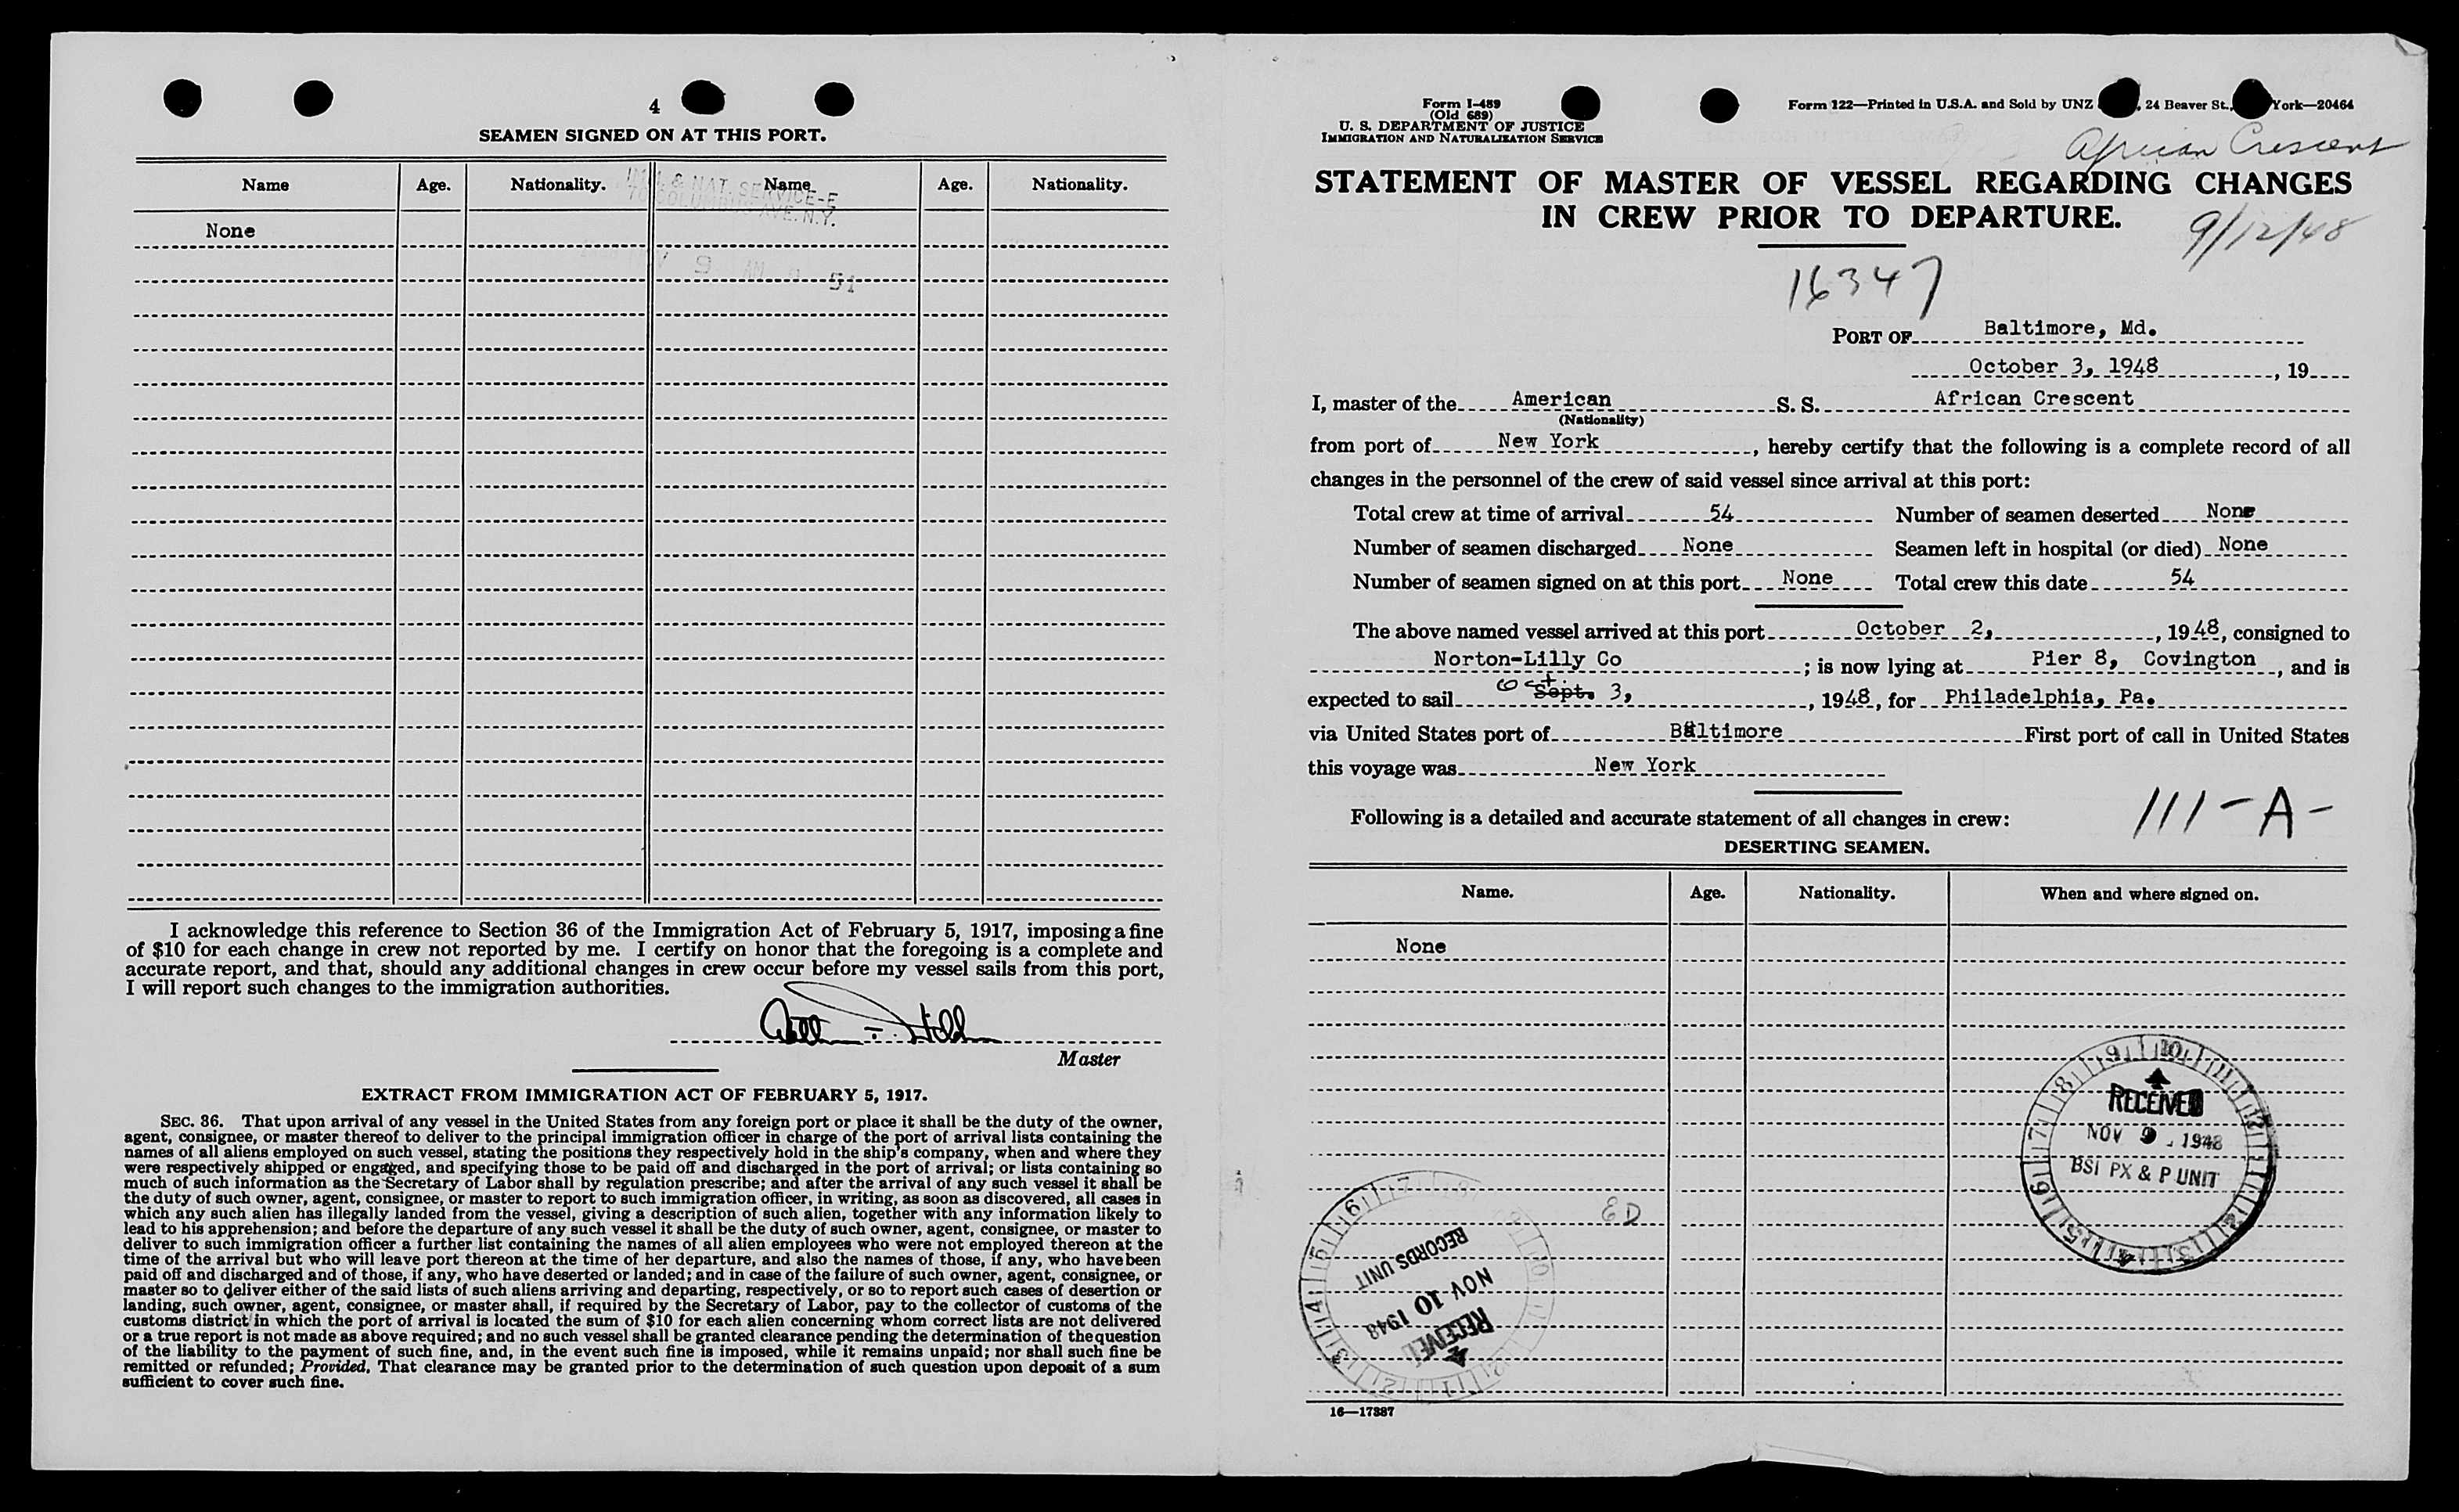 4
SEAMEN SIGNED ON AT THIS PORT.
Name Age. Nationality. Name Age. Nationality.
None
I acknowledge this reference to Section 36 of the Immigration Act of February 5, 1917, imposing a fine
of $10 for each change in crew not reported by me. I certify on honor that the foregoing is a complete and
accurate report, and that, should any additional changes in crew occur before my vessel sails from this port,
I will report such changes to the immigration authorities.
Master
EXTRACT FROM IMMIGRATION ACT OF FEBRUARY 5, 1917.
SEC. 36. That upon arrival of any vessel in the United States from any foreign port or place it shall be the duty of the owner,
agent, consignee, or master thereof to deliver to the principal immigration officer in charge of the port of arrival lists containing the
names of all aliens employed on such vessel, stating the positions they respectively hold in the ship's company, when and where they
were respectively shipped or engaged, and specifying those to be paid off and discharged in the port of arrival; or lists containing so
much of such information as the Secretary of Labor shall by regulation prescribe; and after the arrival of any such vessel it shall be
the duty of such owner, agent, consignee, or master to report to such immigration officer, in writing, as soon as discovered, all cases in
which any such alien has illegally landed from the vessel, giving a description of such alien, together with any information likely to
lead to his apprehension; and before the departure of any such vessel it shall be the duty of such owner, agent, consignee, or master to
deliver to such immigration officer a further list containing the names of all alien employees who were not employed thereon at the
time of the arrival but who will leave port thereon at the time of her departure, and also the names of those, if any, who have been
paid off and discharged and of those, if any, who have deserted or landed; and in case of the failure of such owner, agent, consignee, or
master so to deliver either of the said lists of such aliens arriving and departing, respectively, or so to report such cases of desertion or
landing, such owner, agent, consignee, or master shall, if required by the Secretary of Labor, pay to the collector of customs of the
customs district in which the port of arrival is located the sum of $10 for each alien concerning whom correct lists are not delivered
or a true report is not made as above required; and no such vessel shall be granted clearance pending the determination of the question
of the liability to the payment of such fine, and, in the event such fine is imposed, while it remains unpaid; nor shall such fine be
remitted or refunded; Provided, That clearance may be granted prior to the determination of such question upon deposit of a sum
sufficient to cover such fine.
Form I-489
(Old 689)
U. S. DEPARTMENT OF JUSTICE
IMMIGRATION AND NATURALIZATION SERVICE
Form 122—Printed in U.S.A. and Sold by UNZ , 24 Beaver St., York—20464
African Crescent
STATEMENT OF MASTER OF VESSEL REGARDING CHANGES
IN CREW PRIOR TO DEPARTURE.
9/12/48
16347
PORT OF Baltimore, Md.
October 3, 1948, 19
I, master of the American S. S. African Crescent
(Nationality)
from port of New York, hereby certify that the following is a complete record of all
changes in the personnel of the crew of said vessel since arrival at this port:
Total crew at time of arrival 54 Number of seamen deserted None
Number of seamen discharged None Seamen left in hospital (or died) None
Number of seamen signed on at this port None Total crew this date 54
The above named vessel arrived at this port October 2, , 1948, consigned to
Norton-Lilly Co ; is now lying at Pier 8, Covington, and is
expected to sail Oct. Sept. 3, , 1948, for Philadelphia, Pa.
via United States port of Baltimore First port of call in United States
this voyage was New York
111-A-
Following is a detailed and accurate statement of all changes in crew:
DESERTING SEAMEN.
Name. Age. Nationality. When and where signed on.
None
RECEIVED
NOV 9 - 1948
BSI PX & P UNIT
ED
RECORDS UNIT
NOV 10 1948
RECEIVED
16—17387